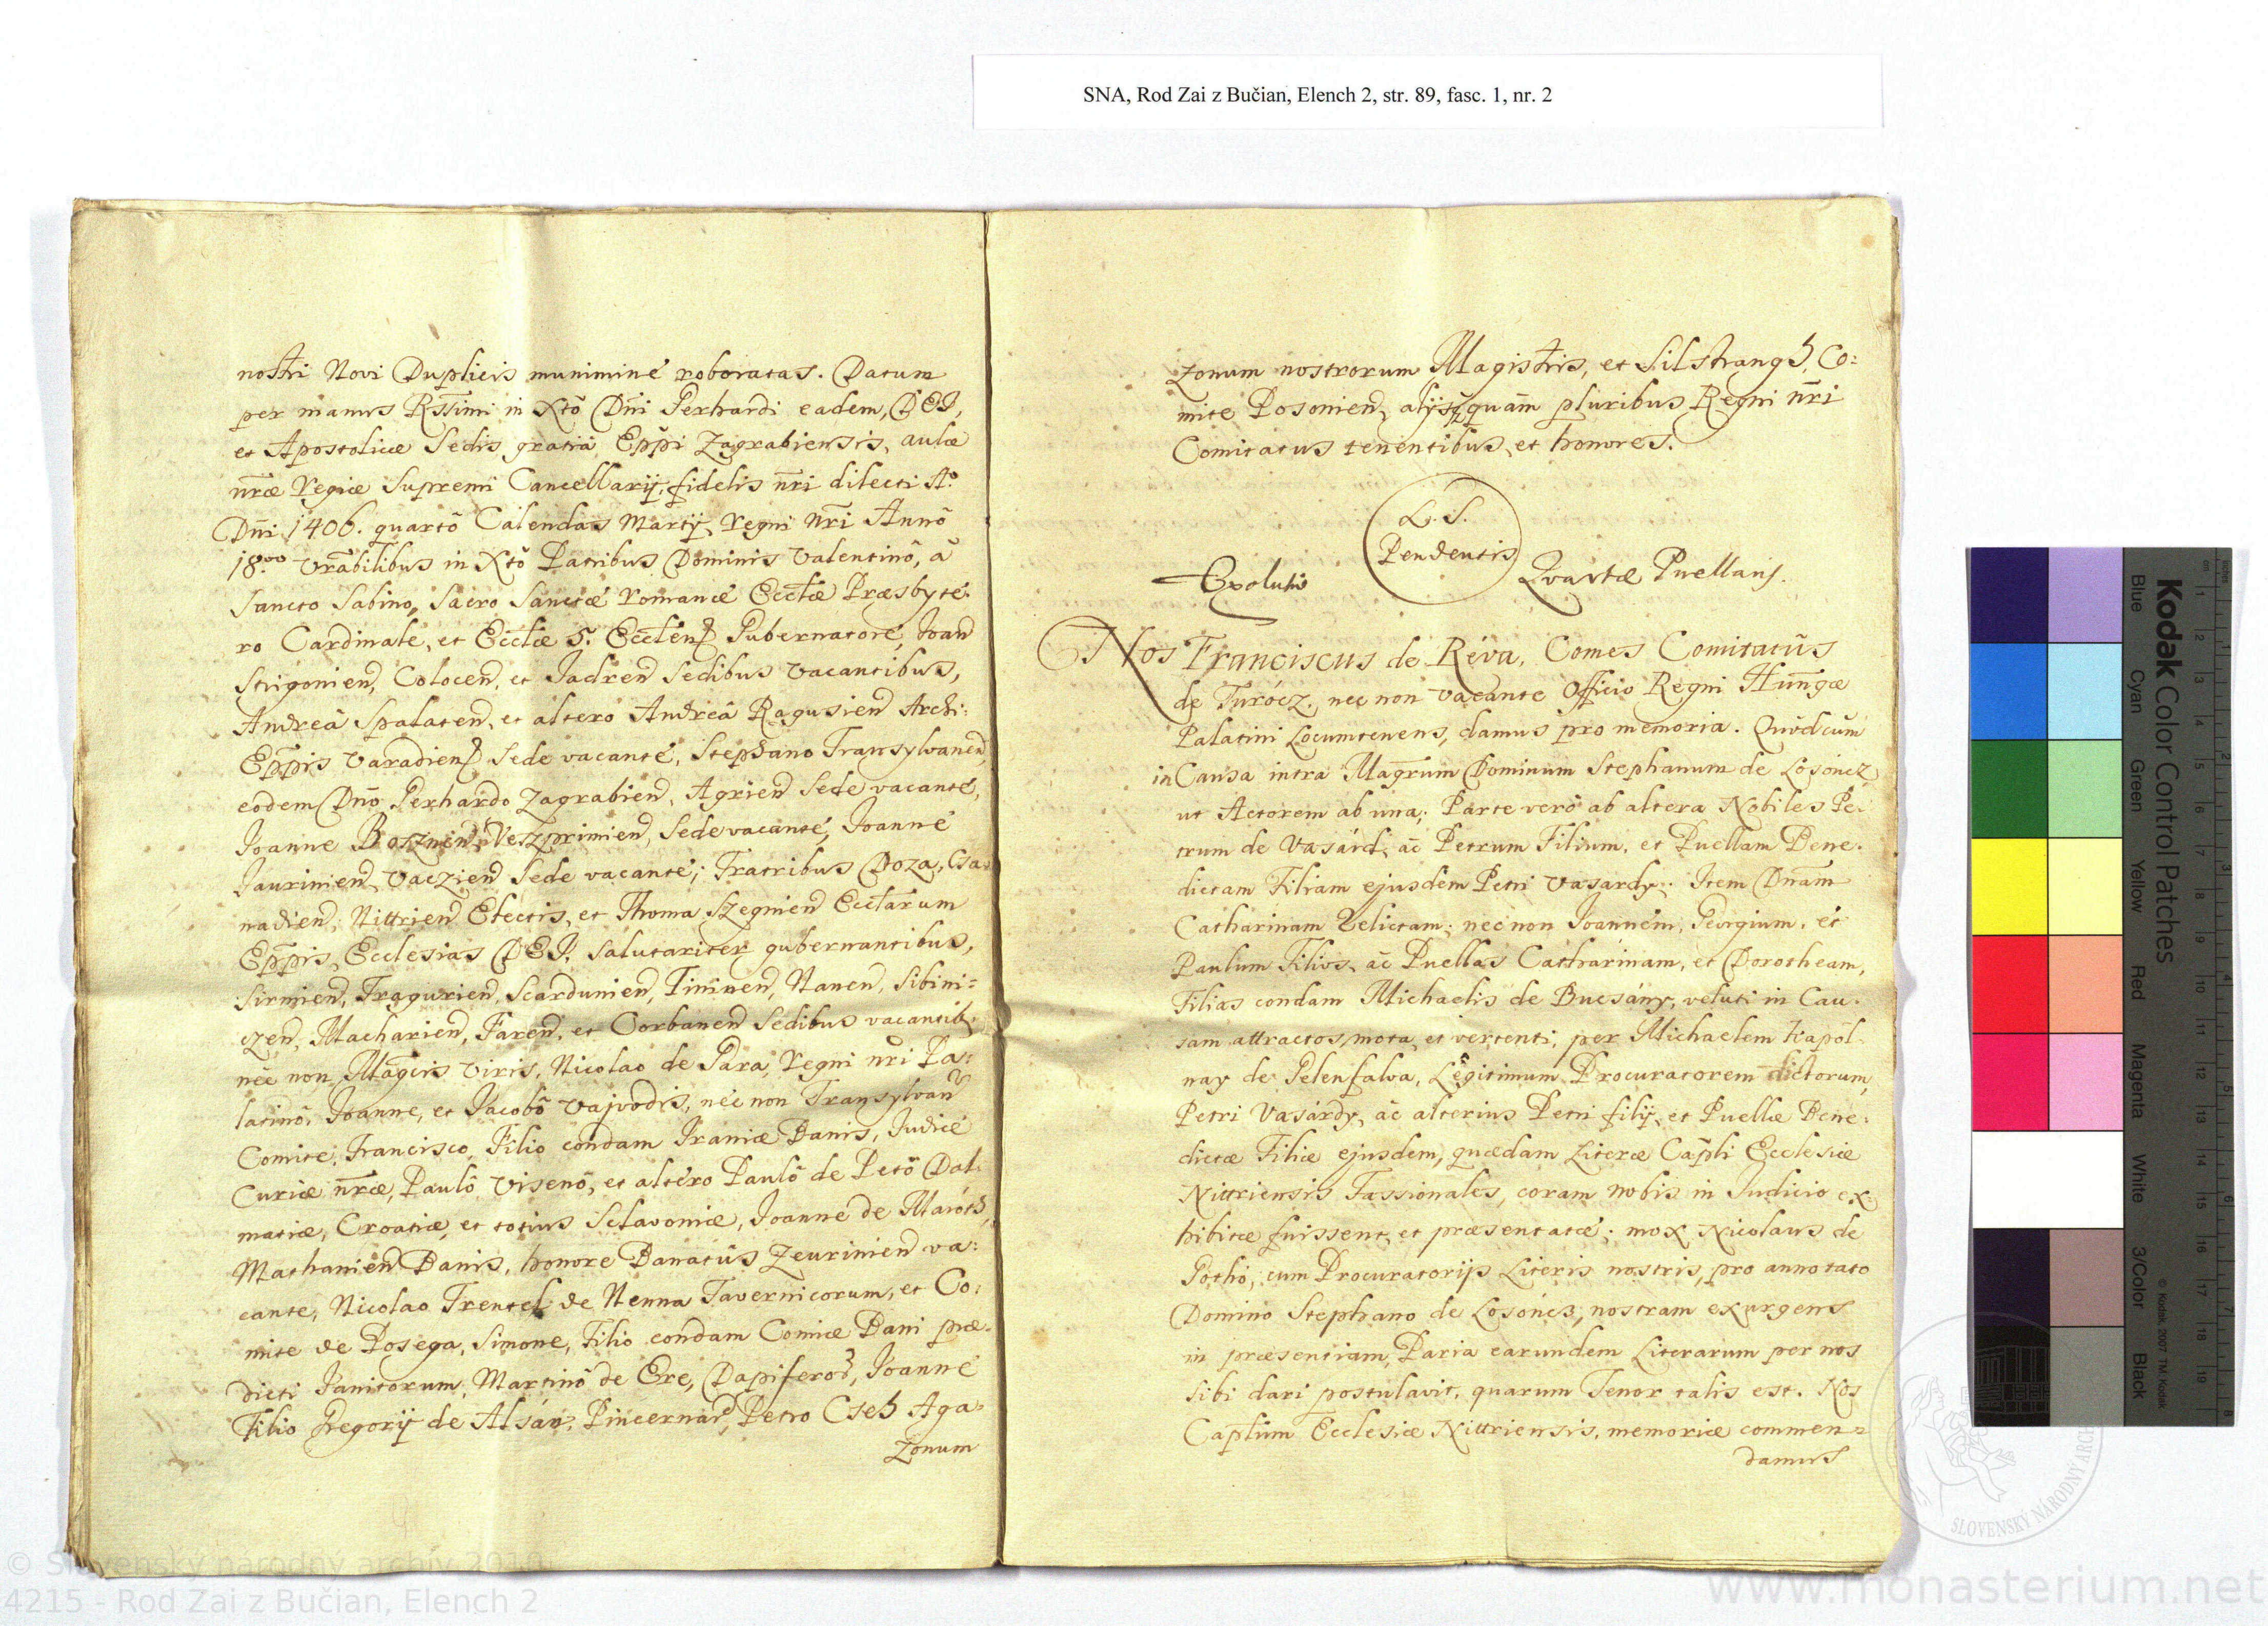 SNA, Rod Zai z Bučian, Elench 2, str. 89, fasc. 1, nr. 2
nostri Novi Duplicis munimine roboratas. Datum
per manus Rss̄imi in Xtō Dn̄i Perhardi eadem, DEI,
et Apostolicæ Sedis gratiâ Epp̄i Zagrabiensis, aulæ
nr̄æ Regiæ Supremi Cancellarij, fidelis nr̄i dilecti Aº
Dn̄i 1406. quartô Calendas Martij, Regni nr̄i Annô
18.º vr̄abilibus in Xtō Patribus Dominis Valentinô, â
Sancto Sabino, Sacro Sanctæ Romanæ Ecctæ Præsbyte-
ro Cardinale, et Ecctæ 5. Ecclēn Gubernatore, Joan
Strigonien, Colocen, et Jadren Sedibus vacantibus,
Andreâ Spalaten, et alterô Andreâ Ragusien Archi-
Epp̄is Varadien Sede vacante, Stephano Transylvanen,
eodem Dn̄o Perhardo Zagrabien, Agrien Sede vacante,
Joanne Boznien, Veszprimien, Sede vacante, Joanne
Jaurinien, Vaczien Sede vacante; Fratribus Doza, Csa-
nadien, Nittrien Electis, et Thoma Szegnien Ecctarum
Epp̄is, Ecclesias DEI, salutariter gubernantibus,
Sirmien, Tragurien, Scardunien, Tininen, Nanen, Sibini-
czen, Macharien, Faren, et Corbanen Sedibus vacantib,
nec non Magcis viris, Nicolao de Gara, Regni nr̄i Pa-
latinô, Joanne, et Jacobô Vajvodis, nec non Transylvan
Comite, Francisco, Filio condam Iraniæ Banis, Judice
Curiæ nr̄æ, Paulô Visenô, et alterô Paulô de Petô Dal-
matiæ, Croatiæ, et totius Sclavoniæ, Joanne de Maroth,
Machanien Banis, honore Banatûs Zeurinien va-
cante, Nicolao Trentel de Nenna Tavernicorum, et Co-
mite de Posega, Simone, Filio condam Comice Bani præ-
dicti Janitorum, Martinô de Ere, Dapiferoꝝ, Joanne
Filio Gregorij de Alsán, Pincernar, Petro Cseh Aga-
zonum
zonum nostrorum Magistris, et Silstrangh, Co-
mite Posonien, alijsq̄ quam̄ pluribus Regni nr̄i
Comitatus tenentibus, et honores.
L. S.
Pendentis
Exolutio Qvartæ Puellaris.
Nos Franciscus de Réva, Comes Comitatûs
de Turócz, nec non vacante Officio Regni Hungæ
Palatini Locumtenens, damus pro memoria. Quòd cùm
in Causa intra Magrum Dominum Stephanum de Losoncz
ut Actorem ab una; Parte verô ab altera Nobiles Pe-
trum de Vasárd, ac Petrum Filium, et Puellam Bene-
dictam Filiam ejusdem Petri Vasardy; Item Dn̄am
Catharinam Relictam; nec non Joannem, Georgium, et
Paulum Filios, ac Puellas Catharinam, et Dorotheam,
Filias condam Michaelis de Bucsány, veluti in Cau-
sam attractos, mota, et vertenti; per Michaelem Kapól-
nay de Gelenfalva, Legitimum Procuratorem dictorum,
Petri Vasárdy, ac alterius Petri filij, et Puellæ Bene-
dictæ Filiæ ejusdem, quædam Literæ Cap̄li Ecclesiæ
Nittriensis Fassionales, coram nobis in Judicio ex-
hibitæ fuissent, et præsentatæ; mox Nicolaus de
Póthó, cum Procuratorijs Literis nostris, pro annotato
Domino Stephano de Losoncz, nostram exurgens
in præsentiam, Paria earundem Literarum per nos
sibi dari postulavit, quarum Tenor talis est. Nos
Caplūm Ecclesiæ Nittriensis, memoriæ commen-
damus
Kodak Color Control Patches
Blue Cyan Green Yellow Red Magenta White 3/Color Black
© Kodak, 2007 TM: Kodak
SLOVENSKÝ NÁRODNÝ ARCH
© Slovenský národný archív 2010
4215 - Rod Zai z Bučian, Elench 2
www.monasterium.net